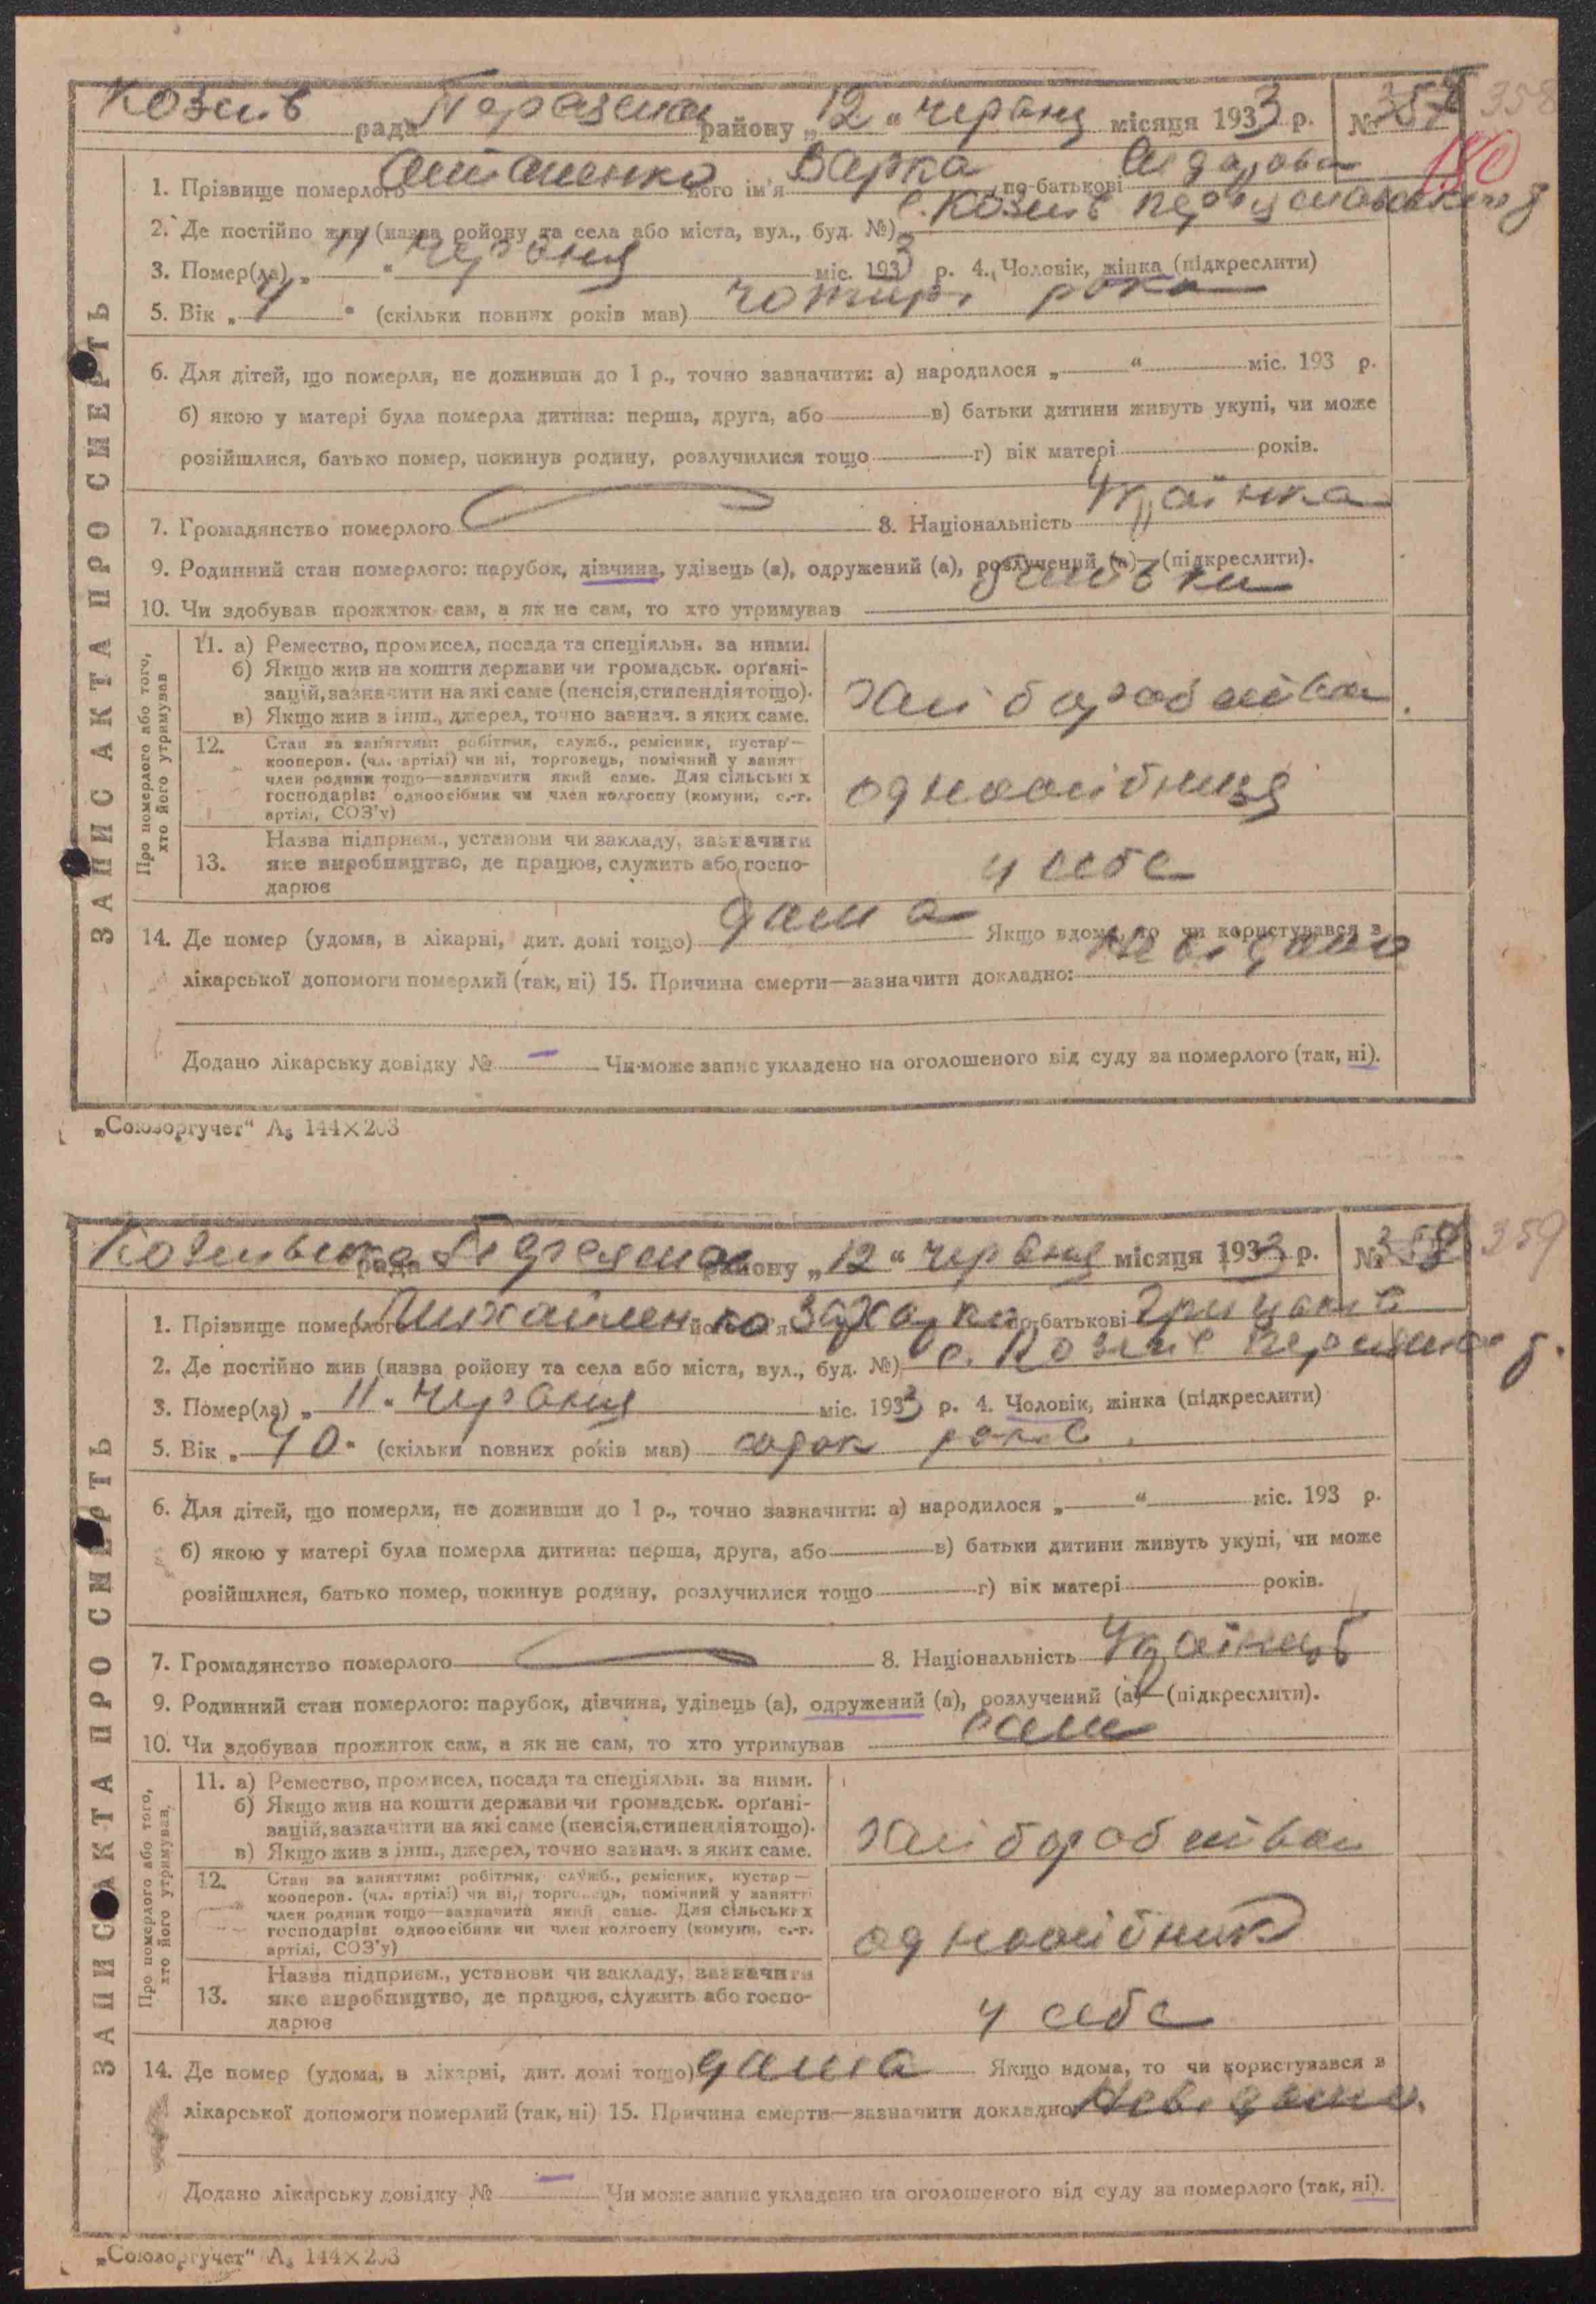 Козиів рада Переяслав району „12“ червня місяця 1933 р. № 357 358
180
1. Прізвище померлого його ім'я Варка по-батькові Сидорова
2. Де постійно жив (назва ройону та села або міста, вул., буд. №) с. Козиів
3. Помер(ла) „11“ червня міс. 1933 р. 4. Чоловік, жінка (підкреслити)
5. Вік „4“ (скільки повних років мав) чотирі рока
6. Для дітей, що померли, не доживши до 1 р., точно зазначити: а) народилося „ “ міс. 193 р.
б) якою у матері була померла дитина: перша, друга, або в) батьки дитини живуть укупі, чи може
розійшлися, батько помер, покинув родину, розлучилися тощо г) вік матері років.
7. Громадянство померлого 8. Національність Українка
9. Родинний стан померлого: парубок, дівчина, удівець (а), одружений (а), розлучений (а)—(підкреслити).
10. Чи здобував прожиток сам, а як не сам, то хто утримував батьки
ЗАПИС АКТА ПРО СМЕРТЬ
Про померлого або того, хто його утримував
11. а) Ремество, промисел, посада та спеціяльн. за ними.
б) Якщо жив на кошти держави чи громадськ. орґані-
зацій, зазначити на які саме (пенсія, стипендія тощо).
в) Якщо жив з інш., джерел, точно зазнач. з яких саме.
хліборобство
12. Стан за заняттям: робітник, служб., ремісник, кустар—
кооперов. (чл. артілі) чи ні, торговець, помічний у занят
член родини тощо—зазначити який саме. Для сільських
господарів: одноосібник чи член колгоспу (комуни, с.-г.
артілі, СОЗ'у)
одноосібниця
Назва підприєм., установи чи закладу, зазначити
13. яке виробництво, де працює, служить або госпо-
дарює
у себе
14. Де помер (удома, в лікарні, дит. домі тощо) дома Якщо вдома, то чи користувався з
лікарської допомоги померлий (так, ні) 15. Причина смерти—зазначити докладно: Невідомо
Додано лікарську довідку № — Чи може запис укладено на оголошеного від суду за померлого (так, ні).
„Союзоргучет“ А₅ 144×203
Козиївська рада району „12“ червня місяця 1933 р. № 358 359
1. Прізвище померлого Михайленко його ім'я Захарко по-батькові Грицьків
2. Де постійно жив (назва ройону та села або міста, вул., буд. №) с. Козиів
3. Помер(ла) „11“ червня міс. 1933 р. 4. Чоловік, жінка (підкреслити)
5. Вік „40“ (скільки повних років мав) сорок років
6. Для дітей, що померли, не доживши до 1 р., точно зазначити: а) народилося „ “ міс. 193 р.
б) якою у матері була померла дитина: перша, друга, або в) батьки дитини живуть укупі, чи може
розійшлися, батько помер, покинув родину, розлучилися тощо г) вік матері років.
7. Громадянство померлого 8. Національність Українець
9. Родинний стан померлого: парубок, дівчина, удівець (а), одружений (а), розлучений (а)—(підкреслити).
10. Чи здобував прожиток сам, а як не сам, то хто утримував сам
ЗАПИС АКТА ПРО СМЕРТЬ
Про померлого або того, хто його утримував
11. а) Ремество, промисел, посада та спеціяльн. за ними.
б) Якщо жив на кошти держави чи громадськ. орґані-
зацій, зазначити на які саме (пенсія, стипендія тощо).
в) Якщо жив з інш., джерел, точно зазнач. з яких саме.
хліборобство
12. Стан за заняттям: робітник, служб., ремісник, кустар—
кооперов. (чл. артілі) чи ні, торговець, помічний у занятті
член родини тощо—зазначити який саме. Для сільських
господарів: одноосібник чи член колгоспу (комуни, с.-г.
артілі, СОЗ'у)
одноосібник
Назва підприєм., установи чи закладу, зазначити
13. яке виробництво, де працює, служить або госпо-
дарює
у себе
14. Де помер (удома, в лікарні, дит. домі тощо) дома Якщо вдома, то чи користувався з
лікарської допомоги померлий (так, ні) 15. Причина смерти—зазначити докладно: Невідомо.
Додано лікарську довідку № — Чи може запис укладено на оголошеного від суду за померлого (так, ні).
„Союзоргучет“ А₅ 144×203